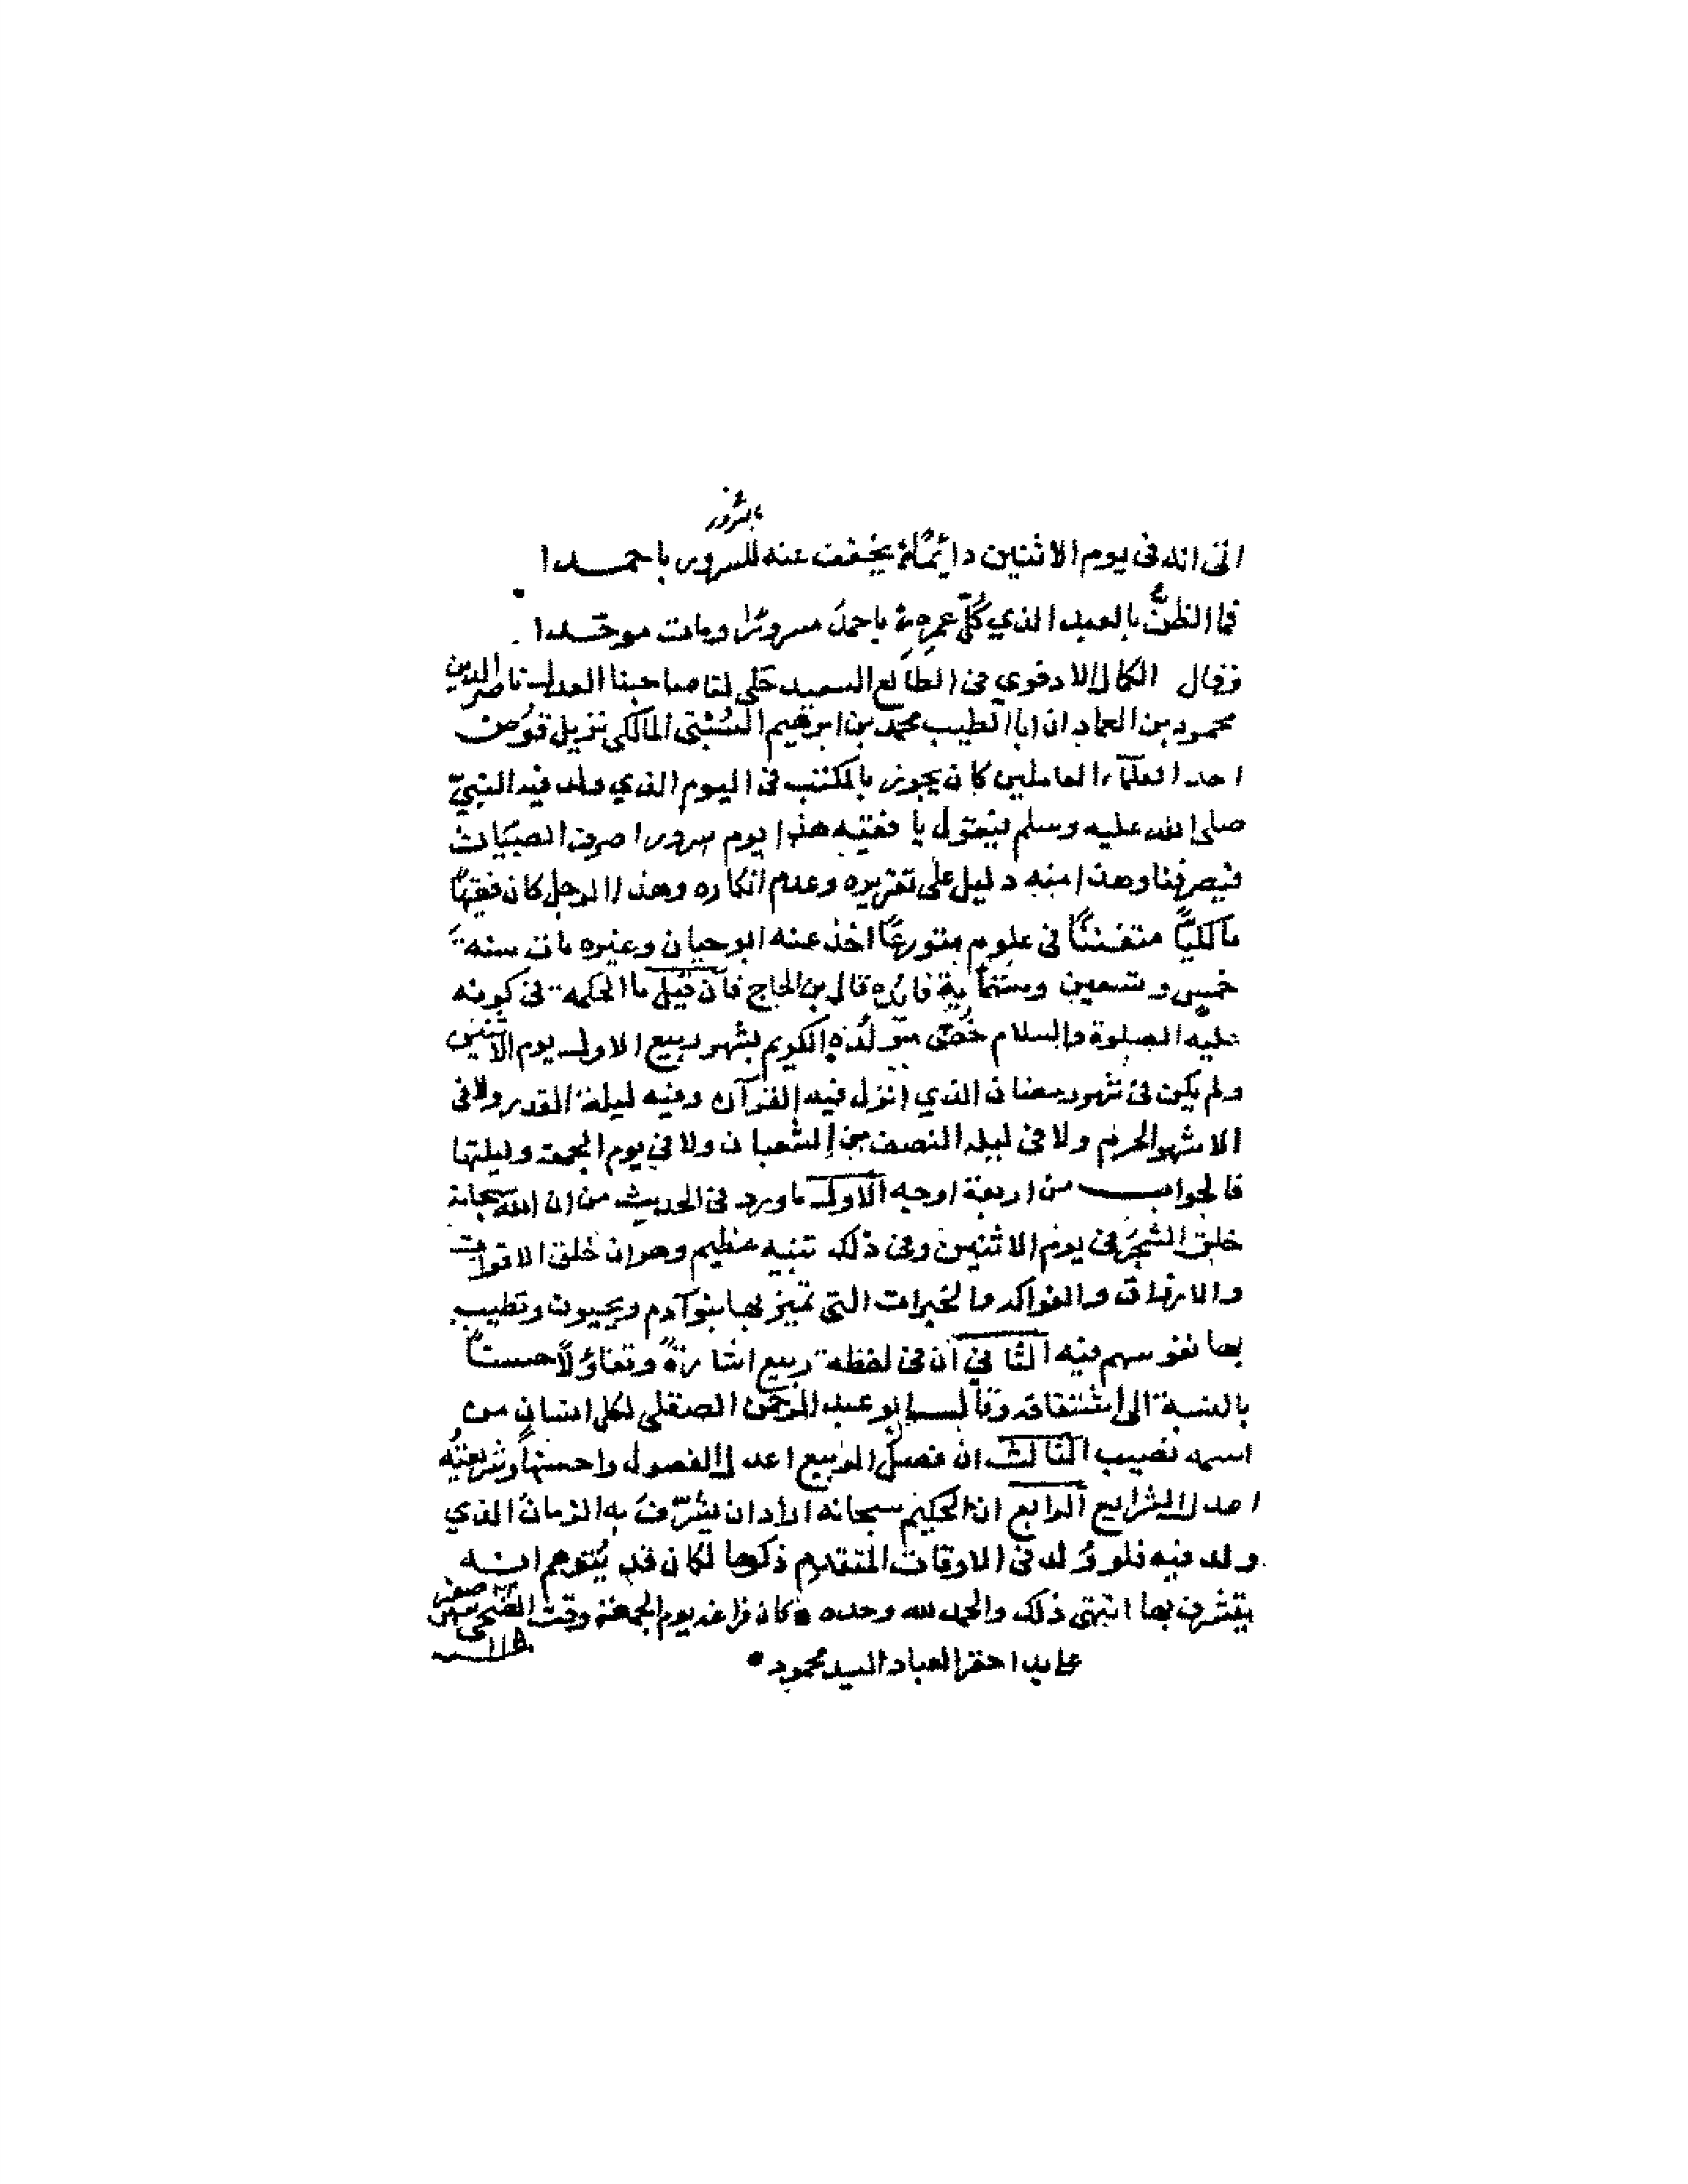 بسرور
اتى انه فى يوم الاثنين دائمًا يخفف عنه للسرور باحمدا
فما الظنّ بالعبد الذي كلّ عمره باحمدَ مسرورًا ومات موحّدا
وقال الكمال الادفوي فى الطالع السعيد حكى لنا صاحبنا العدل ناصر الدين
محمود بن العماد ان ابا الطيب محمد بن ابرهيم السَّبتى المالكى نزيل قوص
احد العلمآء العاملين كان يجوز بالمكتب فى اليوم الذي ولد فيه النبيّ
صلى الله عليه وسلم فيقول يا فقيه هذا يوم سرور اصرف الصبيان
فيصرفنا وهذا منه دليل على تقريره وعدم انكاره وهذا الرجل كان فقيهًا
مالكيًّا متفننًا فى علوم متورعًا اخذ عنه ابو حيان وغيره مات سنة
خمس وتسعين وستمأية فائده قال بن الحاج فان قيل ما الحكمة فى كونه
عليه الصلوة والسلام خُصّ مولده الكريم بشهر ربيع الاول يوم الاثنين
ولم يكن فى شهر رمضان الذي انزل فيه القرآن وفيه ليلة القدر ولا فى
الاشهر الحرم ولا فى ليلة النصف من الشعبان ولا فى يوم الجمعة وليلتها
فالجواب من اربعة اوجه الاول ما ورد فى الحديث من ان الله سبحانه
خلق الشجر فى يوم الاثنين وفى ذلك تنبيه عظيم وهو ان خلق الاقوات
والارزاق والفواكه والخيرات التى تميز بها بنو آدم ويحييون وتطيب
بها نفوسهم فيه الثانى ان فى لفظة ربيع اشارةً وتفاؤلاً حسنًا
بالنسبة الى اشتقاقه وقال ابو عبد الرحمن الصقلى لكل انسان من
اسمه نصيب الثالث ان فصل الربيع اعدل الفصول واحسنها وشريعته
اعدل الشرايع الرابع ان الحكيم سبحانه اراد ان يشرّف به الزمان الذي
ولد فيه فلو وُلد فى الاوقات المتقدم ذكرها لكان قد يُتوهم انه
يتشرف بها انتهى ذلك والحمد لله وحده كان فراغه يوم الجمعة وقت الضحى صفر
على يد احقر العباد السيد محمود